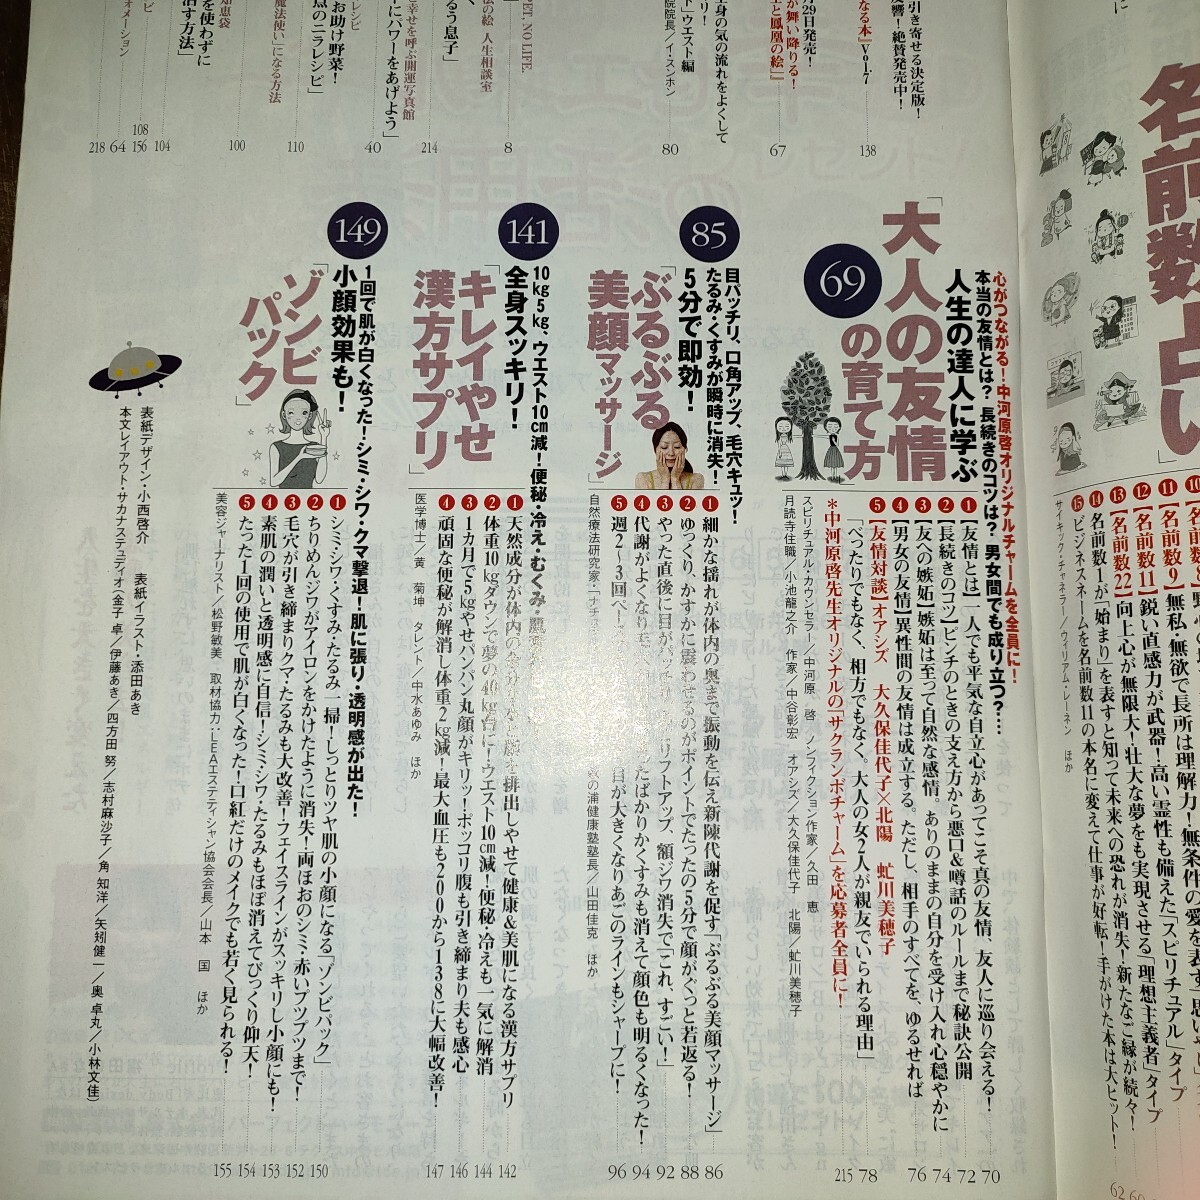 引き寄せる決定版！
反響！絶賛発売中！
なる本』Vol.7
138
月29日発売！
が舞い降りる！
と鳳凰の絵」
67
全身の気の流れをよくして
ト」ウエスト編
院院長／イ・スンホン
80
NO LIFE.
法の絵 人生相談室
8
るう息子」
幸せを呼ぶ開運写真館
214
にパワーをあげよう」
40
レシピ
お助け野菜！
点のニラレシピ」
110
魔法使い」になる方法
知恵袋
100
を使わずに
治す方法」
104
156
108
64
218
名前数占い」
⑪【名前数9】無私・無欲で長所は理解力！無条件の愛を表す
⑫【名前数11】鋭い直感力が武器！高い霊性も備えた「スピリチュアル」タイプ
⑬【名前数22】向上心が無限大！壮大な夢をも実現させる「理想主義者」タイプ
⑭名前数1が「始まり」を表すと知って未来への恐れが消失！新たなご縁が続々！
⑮ビジネスネームを名前数11の本名に変えて仕事が好転！手がけた本は大ヒット！
サイキック・チャネラー／ウィリアム・レーネン ほか
62
心がつながる！中河原啓オリジナルチャームを全員に！
本当の友情とは？ 長続きのコツは？ 男女間でも成り立つ？…
人生の達人に学ぶ
「大人の友情
の育て方
69
①【友情とは】一人でも平気な自立心があってこそ真の友情、友人に巡り会える！
70
②【長続きのコツ】ピンチのときの支え方から悪口&噂話のルールまで秘訣公開
72
③【友への嫉妬】嫉妬は至って自然な感情。ありのままの自分を受け入れ心穏やかに
74
④【男女の友情】異性間の友情は成立する。ただし、相手のすべてを、ゆるせれば
76
⑤【友情対談】オアシズ 大久保佳代子×北陽 虻川美穂子
「べったりでもなく、相方でもなく。大人の女2人が親友でいられる理由」
78
＊中河原啓先生オリジナルの「サクランボチャーム」を応募者全員に！
215
スピリチュアル・カウンセラー／中河原 啓 ノンフィクション作家／久田 恵
月読寺住職／小池龍之介 作家／中谷彰宏 オアシズ／大久保佳代子 北陽／虻川美穂子
85
目パッチリ、口角アップ、毛穴キュッ！
たるみ・くすみが瞬時に消失！
5分で即効！
「ぶるぶる
美顔マッサージ」
①細かな揺れが体内の奥まで振動を伝え新陳代謝を促す「ぶるぶる美顔マッサージ」
86
②ゆっくり、かすかに震わせるのがポイントでたったの5分で顔がぐっと若返る！
88
③やった直後に目がパッチリ
リフトアップ、額ジワ消失で「これ、すごい！」
92
④代謝がよくなり
ったばかりかくすみも消えて顔色も明るくなった！
94
⑤週2〜3回ペー
目が大きくなりあごのラインもシャープに！
96
自然療法研究家・「ナチュ
の浦健康塾塾長／山田佳克 ほか
141
10kg 5kg、ウエスト10cm減！便秘・冷え・むくみ・
全身スッキリ！
「キレイやせ
漢方サプリ」
①天然成分が体内の
を排出しやせて健康&美肌になる漢方サプリ
142
②体重10kgダウンで夢の40kg台に！ウエスト10cm減！便秘・冷えも一気に解消
144
③1カ月で5kgやせパンパン丸顔がキリッ！ポッコリ腹も引き締まり夫も感心
146
④頑固な便秘が解消し体重2kg減！最大血圧も200から138に大幅改善！
147
医学博士／黄 菊坤 タレント／中水あゆみ ほか
149
1回で肌が白くなった！シミ・シワ・クマ撃退！肌に張り・透明感が出た！
小顔効果も！
「ゾンビ
パック」
①シミシワ・くすみ・たるみ一掃！しっとりツヤ肌の小顔になる「ゾンビパック」
150
②ちりめんジワがアイロンをかけたように消失！両ほおのシミ・赤いブツブツまで！
152
③毛穴が引き締まりクマ・たるみも大改善！フェイスラインがスッキリし小顔にも！
153
④素肌の潤いと透明感に自信！シミシワ・たるみもほぼ消えてびっくり仰天！
154
⑤たった1回の使用で肌が白くなった！口紅だけのメイクでも若く見られる！
155
美容ジャーナリスト／松野敏美 取材協力・LEAエステティシャン協会会長／山本 国 ほか
表紙デザイン・小西啓介 表紙イラスト・添田あき
本文レイアウト・サカナステュディオ（金子 卓／伊藤あき／四方田 努／志村麻沙子／角 知洋／矢矧健一／奥 卓丸／小林文佳）